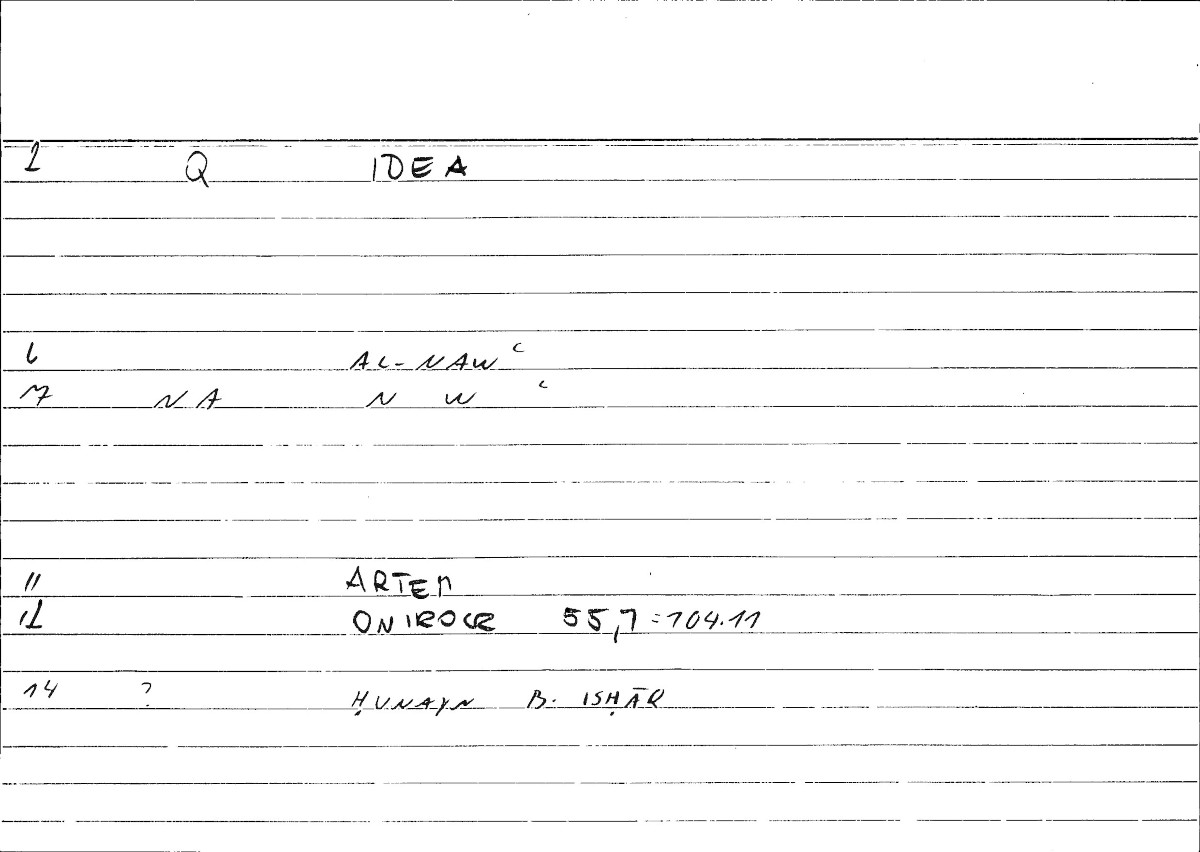 1 Q IDEA
6 AL-NAWʿ
7 NA N W ʿ
11 ARTEM
12 ONIROCR 55,7=104.11
14 ? ḤUNAYN B. ISḤĀQ